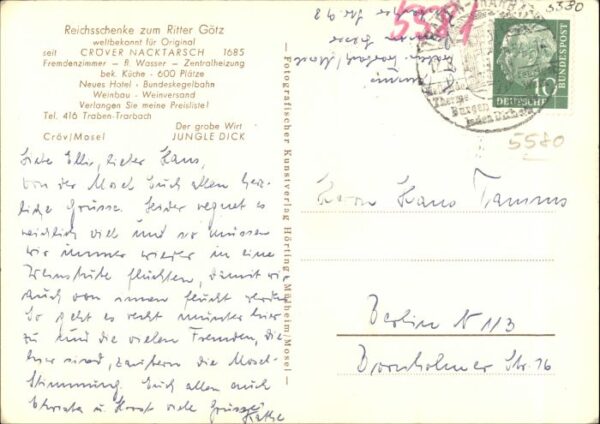 Reichsschenke zum Ritter Götz
weltbekannt für Original
seit CRÖVER NACKTARSCH 1685
Fremdenzimmer — fl. Wasser — Zentralheizung
bek. Küche - 600 Plätze
Neues Hotel - Bundeskegelbahn
Weinbau - Weinversand
Verlangen Sie meine Preisliste!
Tel. 416 Traben-Trarbach
Der grobe Wirt
Cröv/Mosel JUNGLE DICK
Liebe Elli, lieber Hans,
von der Mosel Euch allen herz-
liche Grüsse. Leider regnet es
reichlich viel und so müssen
wir immer wieder in eine
Weinstube flüchten, damit wir
auch von innen feucht werden
So geht es recht munter hier
zu und die vielen Fremden, die
hier sind, zaubern die Mosel-
Stimmung. Euch allen auch
u. Horst viele Grüsse
Käthe
— Fotografischer Kunstverlag Hörting, Mülheim/Mosel —
5581
5580
TRARBACH
Therme
Burgen
DEUTSCHE
BUNDESPOST
10
5580
Herrn Hans
Berlin N 113
Dornholmer Str. 76